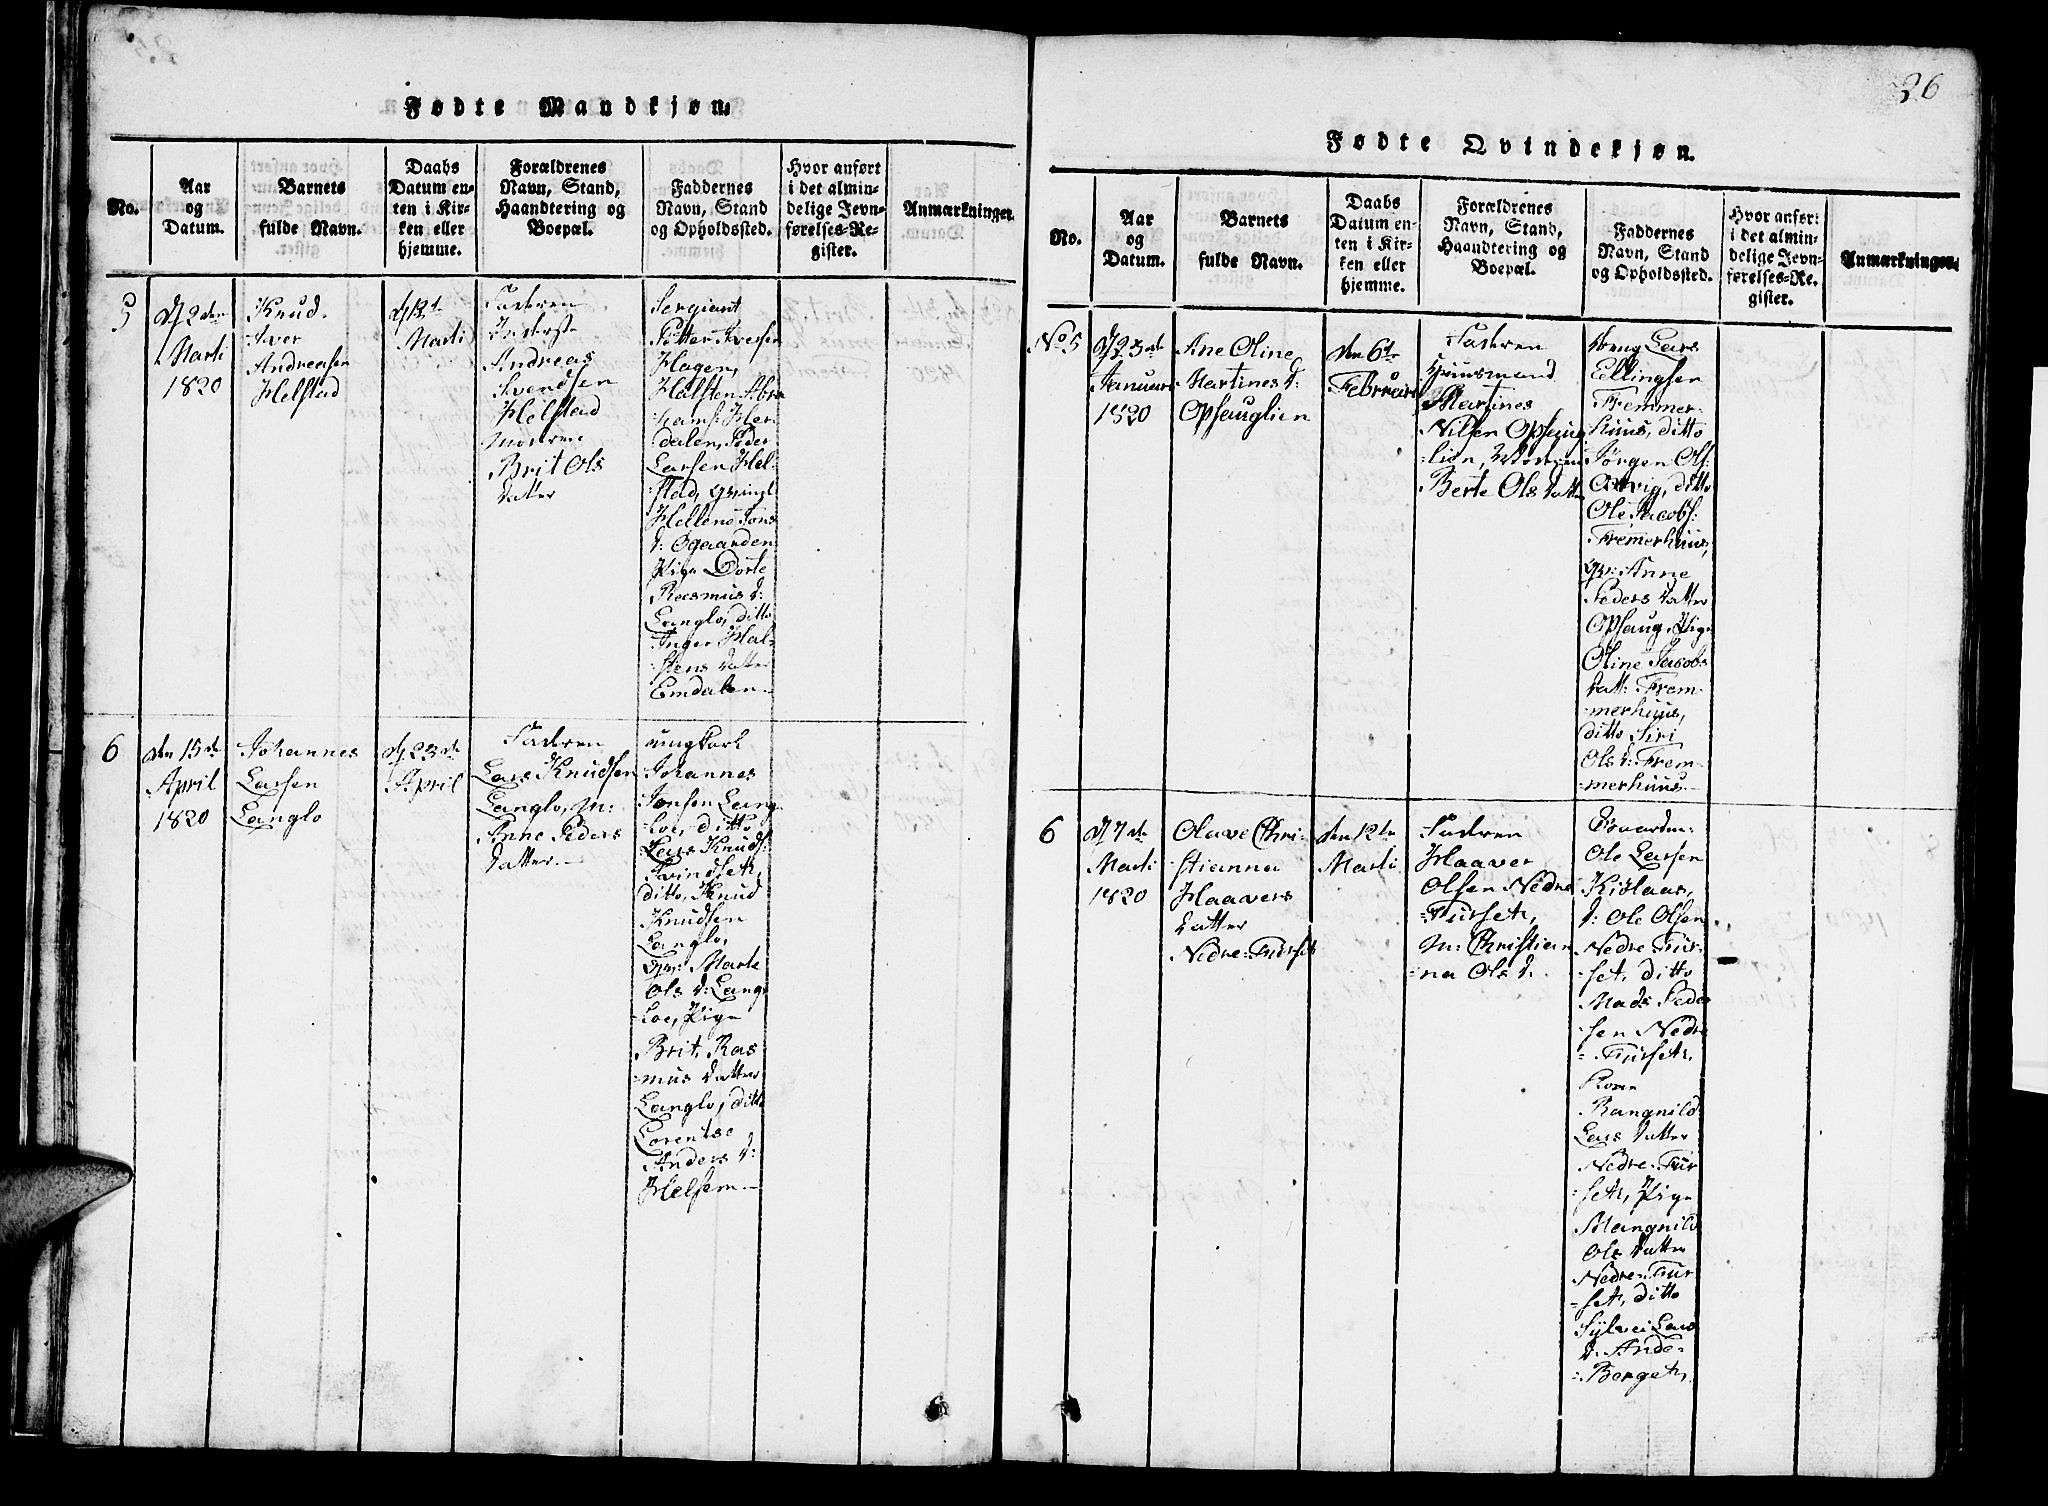 26
Fødte Mandkjøn.
No.
Aar
og
Datum.
Barnets
fulde Navn.
Daabs
Datum en-
ten i Kir-
ken eller
hjemme.
Forældrenes
Navn, Stand,
Haandtering og
Boepæl.
Faddernes
Navn, Stand
og Opholdssted.
Hvor anført
i det almin-
delige Jevn-
førelses-Re-
gister.
Anmærkninger.
5
d/ 2den
Marti
1820
Knud
Iver
Andreasen
Helstad
Marti
Faderen
Inderste
Andreas
Svendsen
Helstad
Moderen
Brit Ols
datter
Sergiant
Petter Iversen
Hagen,
Halsten Abra
hams: Her-
dalen, Peder
Larsen Hel-
stad, qvinde
Hellene Jons
d: Øgaarden
Pige Dorte
Rasmus d:
Langlo, ditto
Inger Hal-
stens datter
Emdalen.
6
den 15de
April
1820
Johannes
Larsen
Langlo
d/ 23de
April
Faderen
Lars Knudsen
Langlo, M:
Anne Peders
datter.
ungkarl
Johannes
Jonsen Lang-
loe, ditto
Lars Knuds:
Svindset,
ditto, Knud
Knudsen
Langlo,
qv: Marte
Ols d: Lang-
loe, Pige
Brit Ras
=mus datter
Langlo, ditto
Lorentse
Anders d:
Helsem.
Fødte Qvindekjøn.
No.
Aar
og
Datum.
Barnets
fulde Navn.
Daabs
Datum en-
ten i Kir-
ken eller
hjemme.
Forældrenes
Navn, Stand,
Haandtering og
Boepæl.
Faddernes
Navn, Stand
og Opholdssted.
Hvor anført
i det almin-
delige Jevn-
førelses-Re-
gister.
Anmærkninger.
No 5
d/ 23de
Januari
1820
Ane Oline
Martines d:
Opsauglien
den 6te
Februari
Faderen
Huusmand
Martines
Nilsen Opsaug
=lien, Moderen
Berte Ols datter
Lars
Ellingsen
Fremmer-
huus, ditto
Jørgen Ols:
ditto
Ole Jacobs:
Fremerhuus,
qv: Anne
Peders datter
Opsaug, Pige
Oline Jacobs
datt: Frem-
=merhuus,
ditto Siri
Ols d: Frem-
merhuus.
6
d/ 7de
Marti
1820
Olave Chri-
stianna
Haavers
datter
Nedre=Furset
den 12te
Marti
Faderen
Haaver
Olsen Nedre
=Furset,
M: Christian
=na Ols d.
Gaardm:
Ole Larsen
Kislaas,
d: Ole Olsen
Nedre Fur-
set, ditto
Mads Peder
sen Nedre
=Furset,
Kone
Rangnild
Lars datter
Nedre=Fur
=set, Pige
Mangnild
Ols datter
Nedre=Fur
=set, ditto
Sÿlvei Lars
d: Ande-
=Berget,